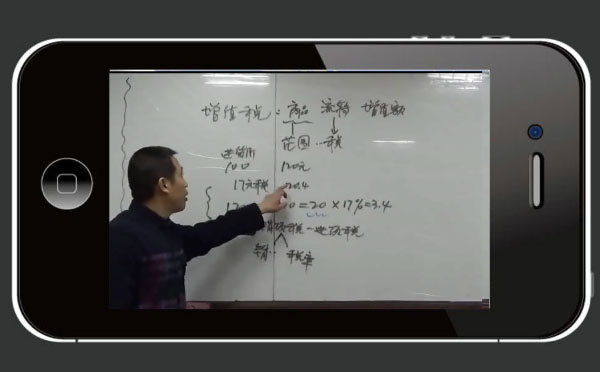 增值税：商品 流转 增值额
范围 税
进货价
100 120元
17元税 20.4
=20×17%=3.4
销项税-进项税
税率